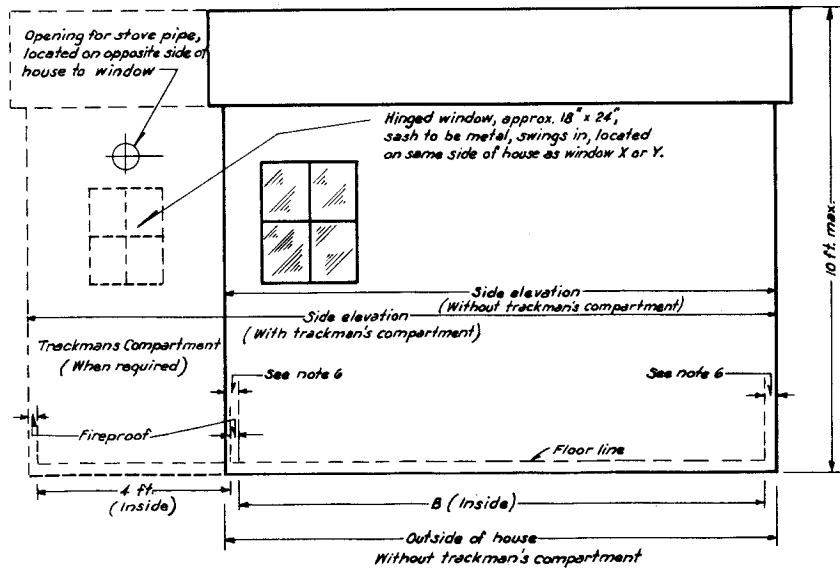 Opening for stove pipe,
located on opposite side of
house to window
Hinged window, approx. 18" x 24",
sash to be metal, swings in, located
on same side of house as window X or Y.
10 ft. max.
Side elevation
(Without trackman's compartment)
Side elevation
(With trackman's compartment)
Trackmans Compartment
(When required)
See note 6
See note 6
Fireproof
Floor line
4 ft.
(Inside)
B (Inside)
Outside of house
Without trackman's compartment